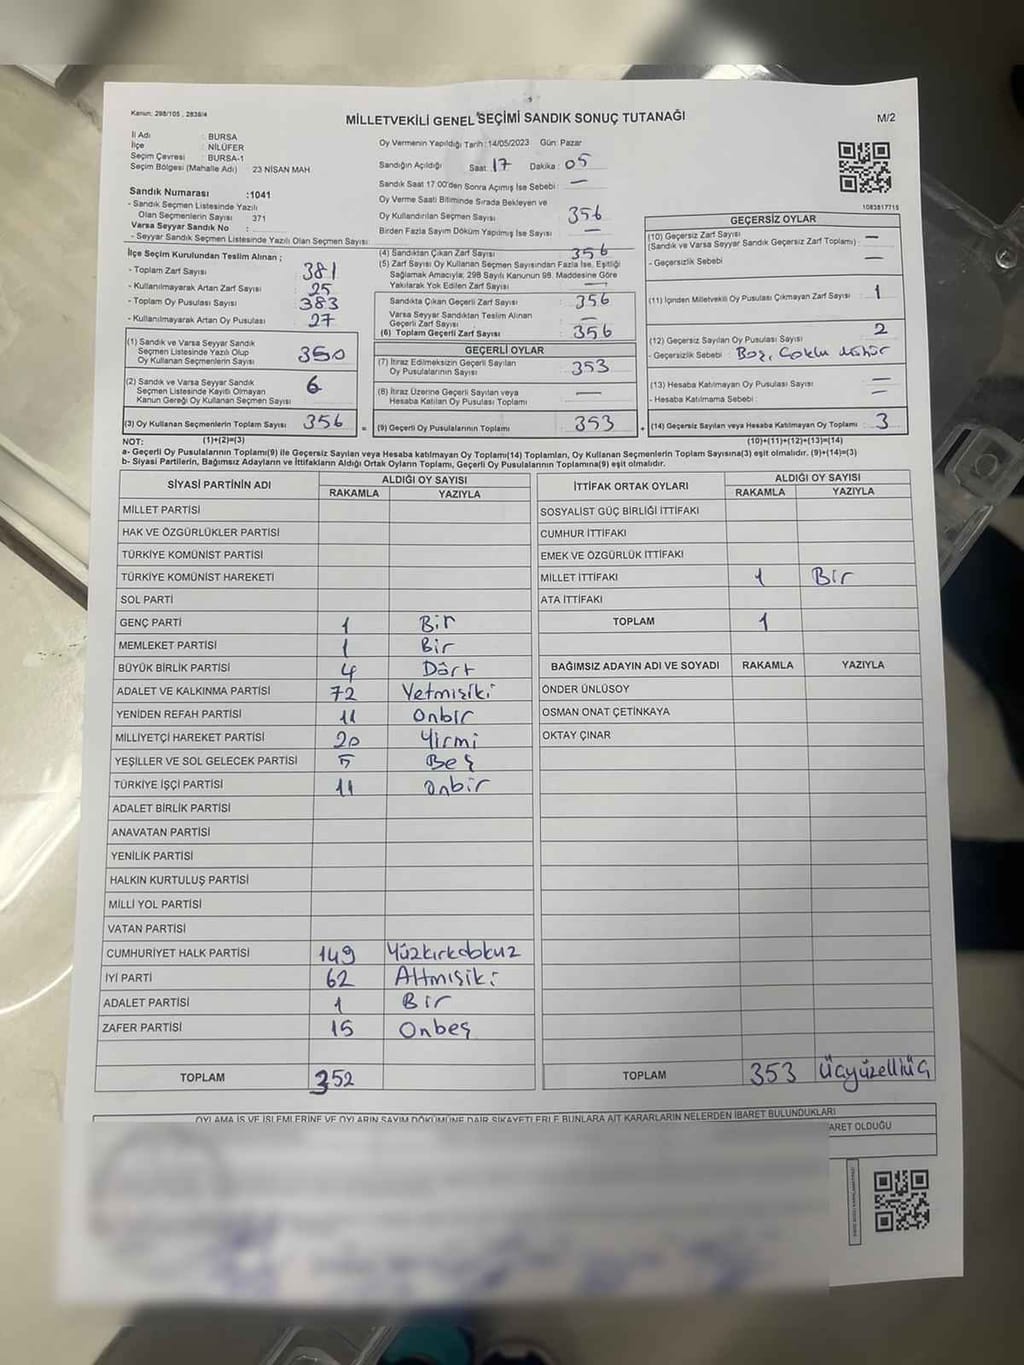 Kanun: 298/105 , 2839/4
MİLLETVEKİLİ GENEL SEÇİMİ SANDIK SONUÇ TUTANAĞI
M/2
İl Adı : BURSA
İlçe : NİLÜFER
Seçim Çevresi : BURSA-1
Seçim Bölgesi (Mahalle Adı) : 23 NİSAN MAH
Oy Vermenin Yapıldığı Tarih :14/05/2023 Gün: Pazar
Sandığın Açıldığı Saat : 17 Dakika : 05
Sandık Saat 17:00'den Sonra Açılmış İse Sebebi : —
Oy Verme Saati Bitiminde Sırada Bekleyen ve
Oy Kullandırılan Seçmen Sayısı : 356
Birden Fazla Sayım Döküm Yapılmış İse Sayısı : —
1083817715
Sandık Numarası :1041
- Sandık Seçmen Listesinde Yazılı
Olan Seçmenlerin Sayısı : 371
Varsa Seyyar Sandık No :
- Seyyar Sandık Seçmen Listesinde Yazılı Olan Seçmen Sayısı :
İlçe Seçim Kurulundan Teslim Alınan ;
- Toplam Zarf Sayısı : 381
- Kullanılmayarak Artan Zarf Sayısı : 25
- Toplam Oy Pusulası Sayısı : 383
- Kullanılmayarak Artan Oy Pusulası : 27
(1) Sandık ve Varsa Seyyar Sandık
Seçmen Listesinde Yazılı Olup
Oy Kullanan Seçmenlerin Sayısı : 350
(2) Sandık ve Varsa Seyyar Sandık
Seçmen Listesinde Kayıtlı Olmayan
Kanun Gereği Oy Kullanan Seçmen Sayısı : 6
(3) Oy Kullanan Seçmenlerin Toplam Sayısı : 356
(4) Sandıktan Çıkan Zarf Sayısı : 356
(5) Zarf Sayısı Oy Kullanan Seçmen Sayısından Fazla İse, Eşitliği
Sağlamak Amacıyla; 298 Sayılı Kanunun 98. Maddesine Göre
Yakılarak Yok Edilen Zarf Sayısı : —
Sandıkta Çıkan Geçerli Zarf Sayısı : 356
Varsa Seyyar Sandıktan Teslim Alınan
Geçerli Zarf Sayısı : —
(6) Toplam Geçerli Zarf Sayısı : 356
GEÇERLİ OYLAR
(7) İtiraz Edilmeksizin Geçerli Sayılan
Oy Pusulalarının Sayısı : 353
(8) İtiraz Üzerine Geçerli Sayılan veya
Hesaba Katılan Oy Pusulası Toplamı : —
= (9) Geçerli Oy Pusulalarının Toplamı : 353
GEÇERSİZ OYLAR
(10) Geçersiz Zarf Sayısı
(Sandık ve Varsa Seyyar Sandık Geçersiz Zarf Toplamı) : —
- Geçersizlik Sebebi : —
(11) İçinden Milletvekili Oy Pusulası Çıkmayan Zarf Sayısı : 1
(12) Geçersiz Sayılan Oy Pusulası Sayısı : 2
- Geçersizlik Sebebi : Boş, Çoklu
(13) Hesaba Katılmayan Oy Pusulası Sayısı : —
- Hesaba Katılmama Sebebi : —
+ (14) Geçersiz Sayılan veya Hesaba Katılmayan Oy Toplamı : 3
NOT: (1)+(2)=(3)
(10)+(11)+(12)+(13)=(14)
a- Geçerli Oy Pusulasının Toplamı(9) ile Geçersiz Sayılan veya Hesaba Katılmayan Oy Toplamı(14) Toplamları, Oy Kullanan Seçmenlerin Toplam Sayısına(3) eşit olmalıdır. (9)+(14)=(3)
b- Siyasi Partilerin, Bağımsız Adayların ve İttifakların Aldığı Ortak Oyların Toplamı, Geçerli Oy Pusulalarının Toplamına(9) eşit olmalıdır.
SİYASİ PARTİNİN ADI
ALDIĞI OY SAYISI
RAKAMLA YAZIYLA
MİLLET PARTİSİ
HAK VE ÖZGÜRLÜKLER PARTİSİ
TÜRKİYE KOMÜNİST PARTİSİ
TÜRKİYE KOMÜNİST HAREKETİ
SOL PARTİ
GENÇ PARTİ 1 Bir
MEMLEKET PARTİSİ 1 Bir
BÜYÜK BİRLİK PARTİSİ 4 Dört
ADALET VE KALKINMA PARTİSİ 72 Yetmişiki
YENİDEN REFAH PARTİSİ 11 Onbir
MİLLİYETÇİ HAREKET PARTİSİ 20 Yirmi
YEŞİLLER VE SOL GELECEK PARTİSİ 5 Beş
TÜRKİYE İŞÇİ PARTİSİ 11 onbir
ADALET BİRLİK PARTİSİ
ANAVATAN PARTİSİ
YENİLİK PARTİSİ
HALKIN KURTULUŞ PARTİSİ
MİLLİ YOL PARTİSİ
VATAN PARTİSİ
CUMHURİYET HALK PARTİSİ 149 Yüzkırkdokuz
İYİ PARTİ 62 Altmışiki
ADALET PARTİSİ 1 Bir
ZAFER PARTİSİ 15 Onbeş
TOPLAM 352
İTTİFAK ORTAK OYLARI
ALDIĞI OY SAYISI
RAKAMLA YAZIYLA
SOSYALİST GÜÇ BİRLİĞİ İTTİFAKI
CUMHUR İTTİFAKI
EMEK VE ÖZGÜRLÜK İTTİFAKI
MİLLET İTTİFAKI 1 Bir
ATA İTTİFAKI
TOPLAM 1
BAĞIMSIZ ADAYIN ADI VE SOYADI RAKAMLA YAZIYLA
ÖNDER ÜNLÜSOY
OSMAN ONAT ÇETİNKAYA
OKTAY ÇINAR
TOPLAM 353 Üçyüzelliüç
OYLAMA İŞ VE İŞLEMLERİNE VE OYLARIN SAYIM DÖKÜMÜNE DAİR ŞİKAYETLERLE BUNLARA AİT KARARLARIN NELERDEN İBARET BULUNDUKLARI
ARET OLDUĞU